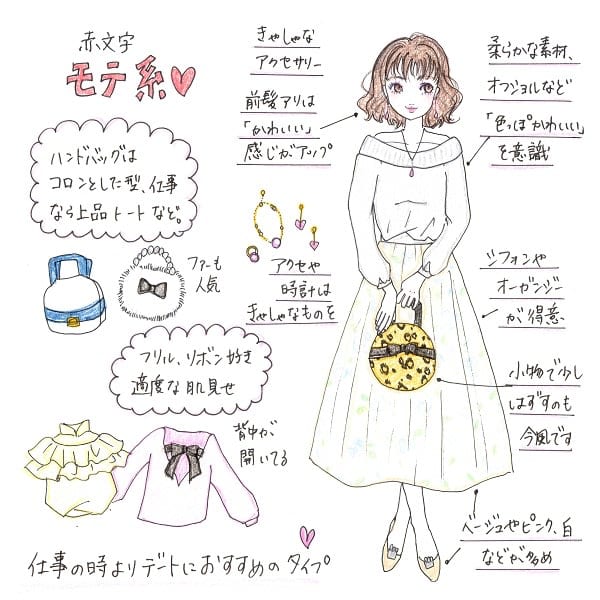 赤文字
モテ系
ハンドバッグは
コロンとした型、仕事
なら上品トートなど。
ファーも
人気
フリル、リボン好き
適度な肌見せ
背中が
開いてる
仕事の時よりデートにおすすめのタイプ
きゃしゃな
アクセサリー
前髪アリは
「かわいい」
感じがアップ
アクセや
時計は
きゃしゃなものを
柔らかな素材、
オフショルなど
「色っぽかわいい」
を意識
シフォンや
オーガンジー
が得意
小物で少し
はずすのも
今風です
ベージュやピンク、白
などが多め